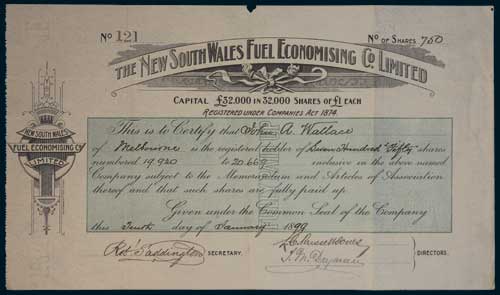 No 121
No OF SHARES 750
THE NEW SOUTH WALES FUEL ECONOMISING Co. LIMITED
CAPITAL £32.000 IN 32.000 SHARES OF £1 EACH
REGISTERED UNDER COMPANIES ACT 1874.
NEW SOUTH WALES
FUEL ECONOMISING Co
LIMITED
This is to Certify that John A. Wallace
of Melbourne is the registered holder of Seven Hundred & Fifty shares
numbered 19,920 to 20.669 inclusive in the above named
Company subject to the Memorandum and Articles of Association
thereof and that such shares are fully paid up.
Given under the Common Seal of the Company
this Tenth day of January 1899
SECRETARY.
DIRECTORS.